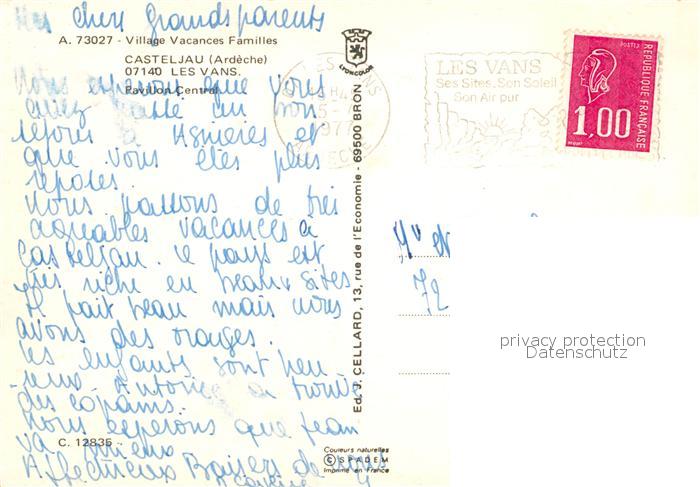 Mes chers grands parents
A. 73027 - Village Vacances Familles
CASTELJAU (Ardèche)
07140 LES VANS.
Pavillon Central
Nous esperons que vous
avez passé un bon
sejour à Asnieres et
que vous êtes plus
reposés.
Nous passons de très
agreables vacances à
Casteljau. Le pays est
très riche en beaux sites
Il fait beau mais nous
avons des orages.
Les enfants sont heu-
reux. Antoine a trouvé
des copains.
Nous esperons que Jean
va mieux
Affectueux Baisers de nous
4
C. 12835
LYONCOLOR
Ed. J. CELLARD, 13, rue de l'Economie - 69500 BRON
Couleurs naturelles
SPADEM
Imprimé en France
1977
LES VANS
Ses Sites, Son Soleil
Son Air pur
POSTES
REPUBLIQUE FRANÇAISE
1,00
Mr et
72
privacy protection
Datenschutz